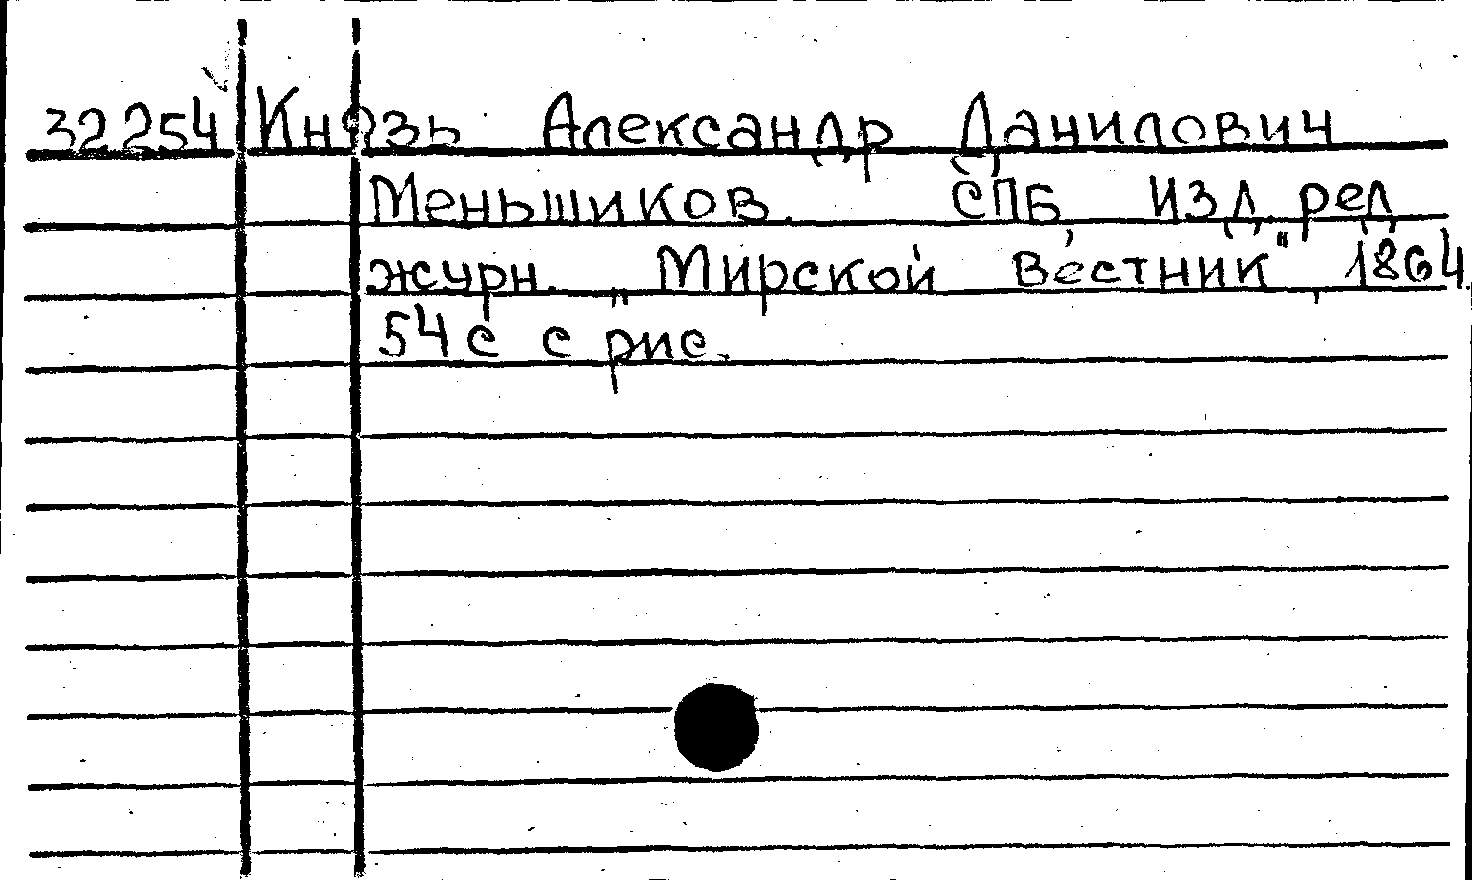 32254 Князь Александр Данилович
Меньшиков. СПБ, изд. ред.
журн. „Мирской Вестник", 1864.
54 с с рис.